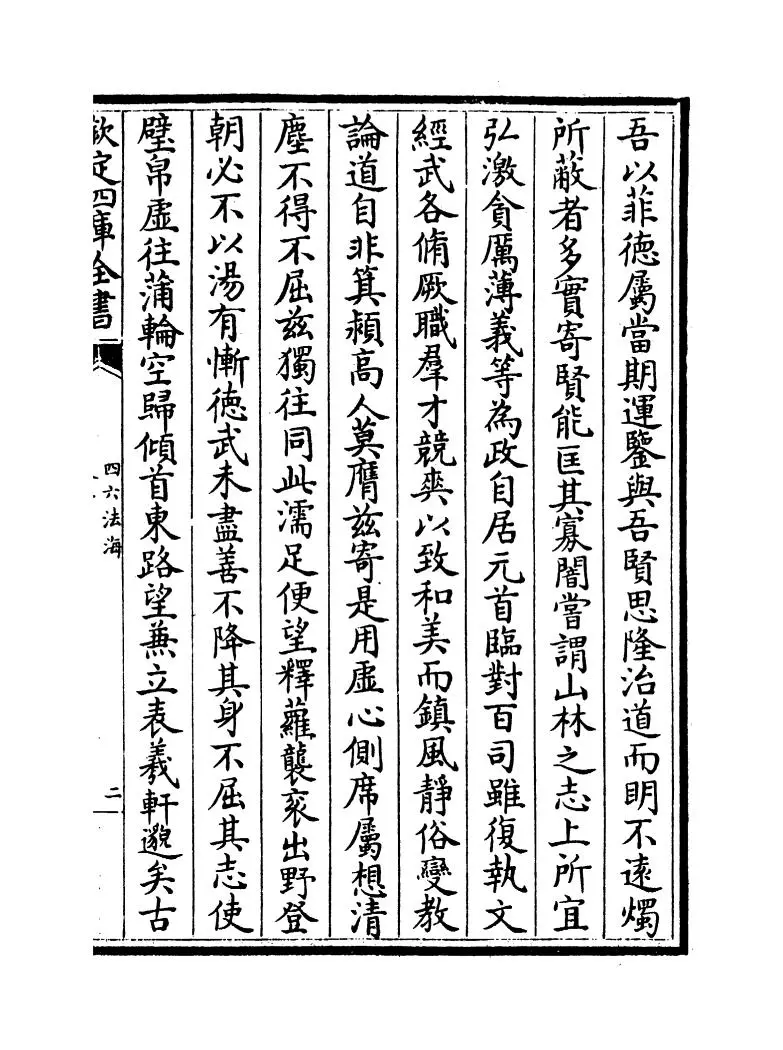 吾以菲徳屬當期運鑒與吾賢思隆治道而明不遠燭
所蔽者多實寄賢能匡其寡闇嘗謂山林之志上所宜
弘激貪厲薄義等為政自居元首臨對百司雖復執文
經武各脩厥職羣才競爽以致和美而鎮風靜俗變教
論道自非箕潁高人莫膺兹寄是用虛心側席屬想清
塵不得不屈兹獨往同此濡足便望釋蘿襲衮出野登
朝必不以湯有慚徳武未盡善不降其身不屈其志使
璧帛虛往蒲輪空歸傾首東路望兼立表羲軒邈矣古
欽定四庫全書
四六法海
二